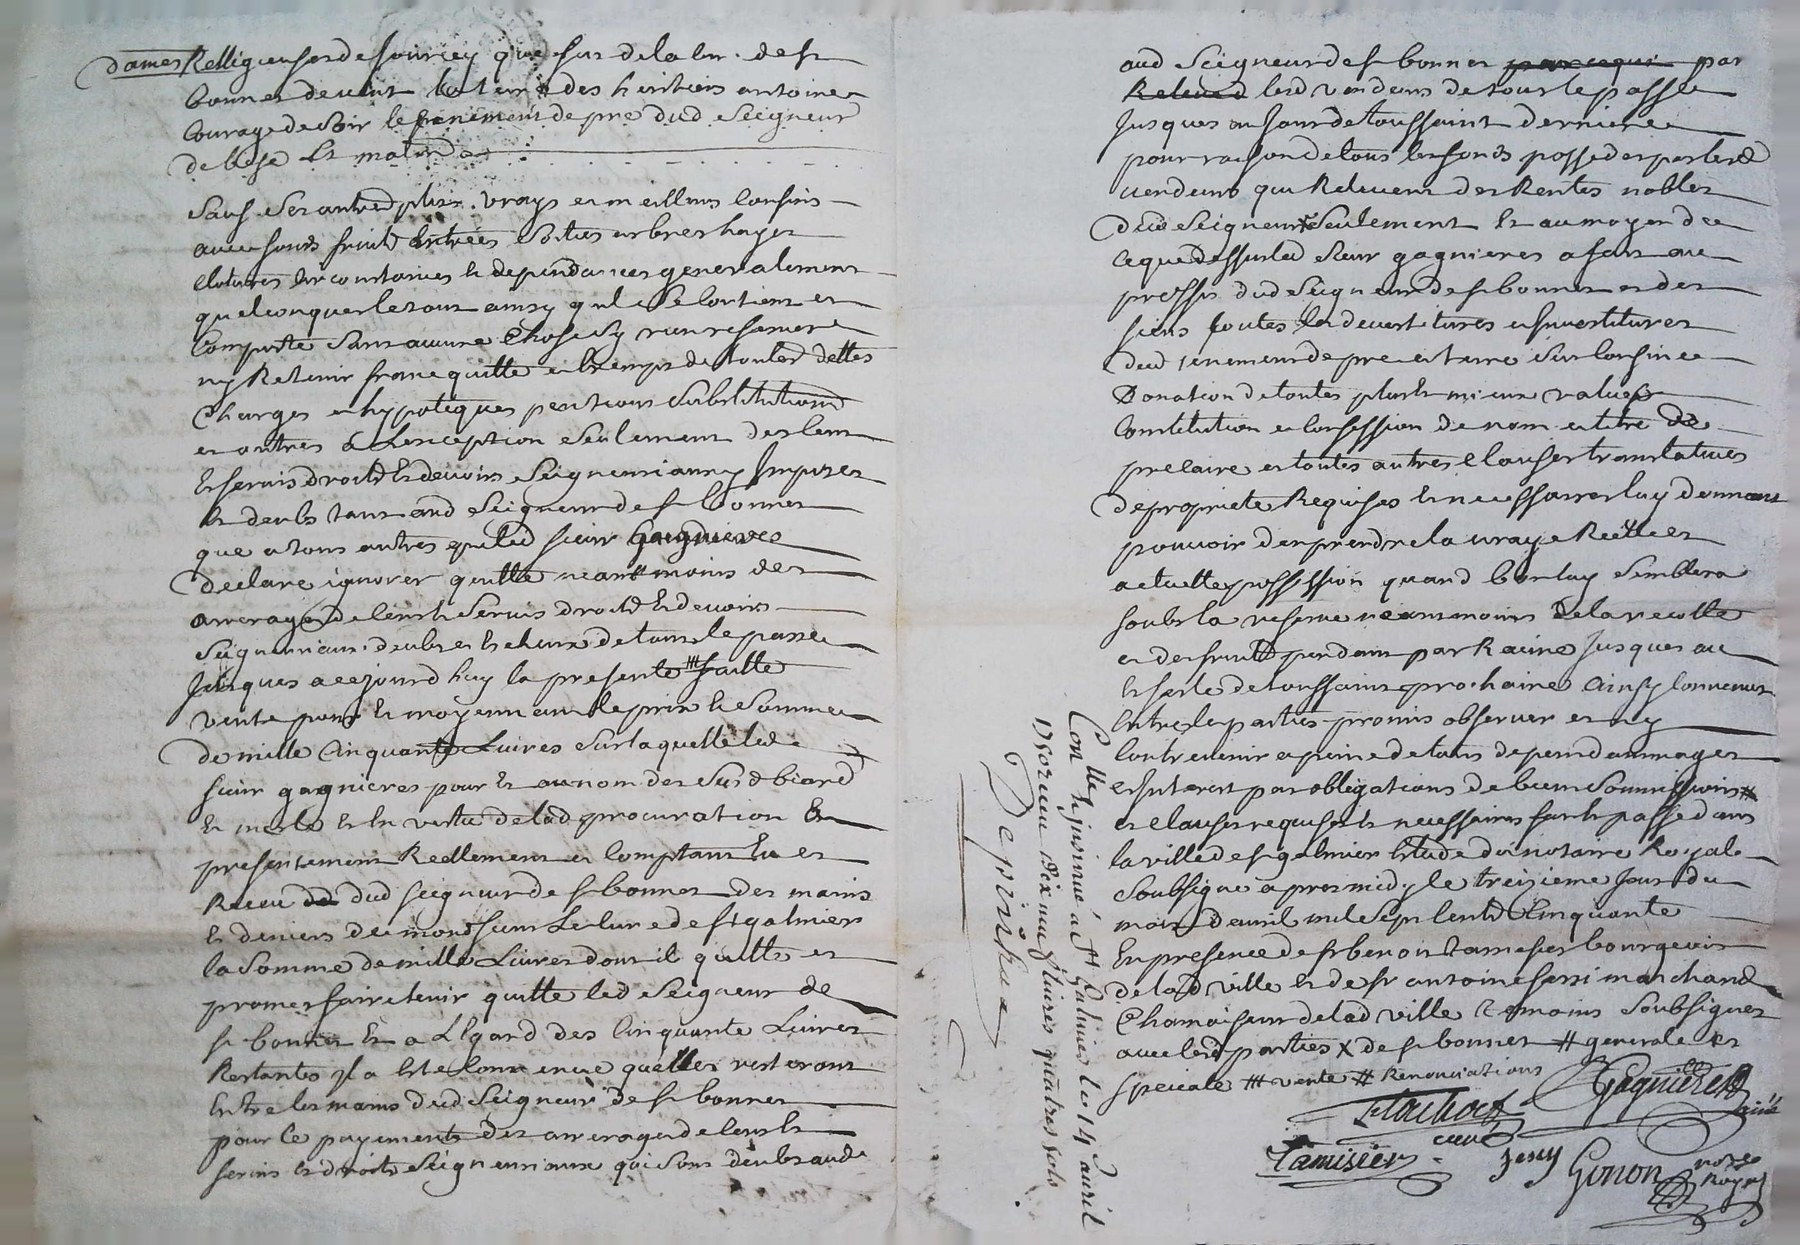 dames Relligieuses de Jourcey que sur de la ter. de st
bonnet devient la terre des heritiers antoine
Courage de soir le tenement de pre dud Seigneur
de bise et matin
Sauf ses autres plus vrays et meilleurs Confins
avec fonds fruits Entrées Sorties arbres hayes
Clotures circonstances et dependances generalement
quelconques le tout ainsy quil se Contient et
Comporte sans aucune Chose y reserver
ny Retenir franc quitte et exempt de toutes dettes
Charges et hypoteques pentions Substitutions
et autres a Lexception seulement des Cens
et servis droits et devoirs Seigneuriaux Imposes
et deubs tant aud Seigneur de st bonnet
que a tous autres que led sieur Gagnieres
declare ignorer quitte neantmoins des
arrerages de Cens et Servis droits et devoirs
Seigneuriaux deubs et Echeus de tout le passe
Jusques a aejourdhuy la presente # faitte
vente pour et moyennant le prix et Somme
de mille Cinquante Livres sur laquelle led
sieur gagnieres pour et au nom des Susd biard
et merle et En vertu de lad procuration En
presentement Reellement et Comptant Eu et
Receu dud seigneur de st bonnet des mains
et deniers de monsieur Le Cure de st galmier
la Somme de mille Livres dont il quitte et
promet faire tenir quitte led Seigneur de
st bonnet Et a LEgard des Cinquante Livres
Restantes Il a Este Convenu quelles resteront
Entre les mains dud Seigneur de st bonnet
pour le payement des arrerages de Cens et
servis et droits Seigneuriaux qui sont deubs aud
aud Seigneur de st bonnet par
lesd vendeurs de tout le passe
Jusques au Jour de toussaint derniere
pour raison de tous les fonds possedes par lesd
vendeurs qui Relevent des Rentes nobles
dud Seigneur X Seulement Et au moyen de
ce que dessus led Sieur gagnieres a fait au
proffit dud Seigneur de st bonnet et des
siens toutes les devestitures et Investitures
dud tenement de pre et terre sus Confine
Donation de toutes plus et mieux values
Constitution et Confession de nom et titre de
precaire et toutes autres Clauses translatives
de propriete Requises et necessaires luy donnant
pouvoir den prendre la vraye Reelle et
actuelle possession quand bon luy Semblera
soubs la reserve neantmoins de la recolte
et des fruits pendant par Racine Jusques au
et feste de toussaint prochaine Ainsy Convenus
Entre les parties promis observer et ny
Contrevenir a peine de tous depens dommages
et Interest par obligations de biens Soumissions #
et clauses requises et necessaires fait et passe dans
la ville de st galmier Etude du notaire Royal
Soubsigne apres midy le treizieme Jour du
mois davril mil Sept Cents Cinquante
En presence de sr benoit tamisier bourgeois
de lad ville et de sr antoine marchand
Chamoiseur de lad ville temoins Soubsignes
avec lesd parties X de st bonnet # generale et
speciale # vente # Renonciations
Gagnieres
Flachat
curé
ainé
Tamisier
Gonon nore
Royal
Conllé & jnsinué à St Galmier le 14 avril
1750 receu Dix neuf livres quatres sols
Depinhac